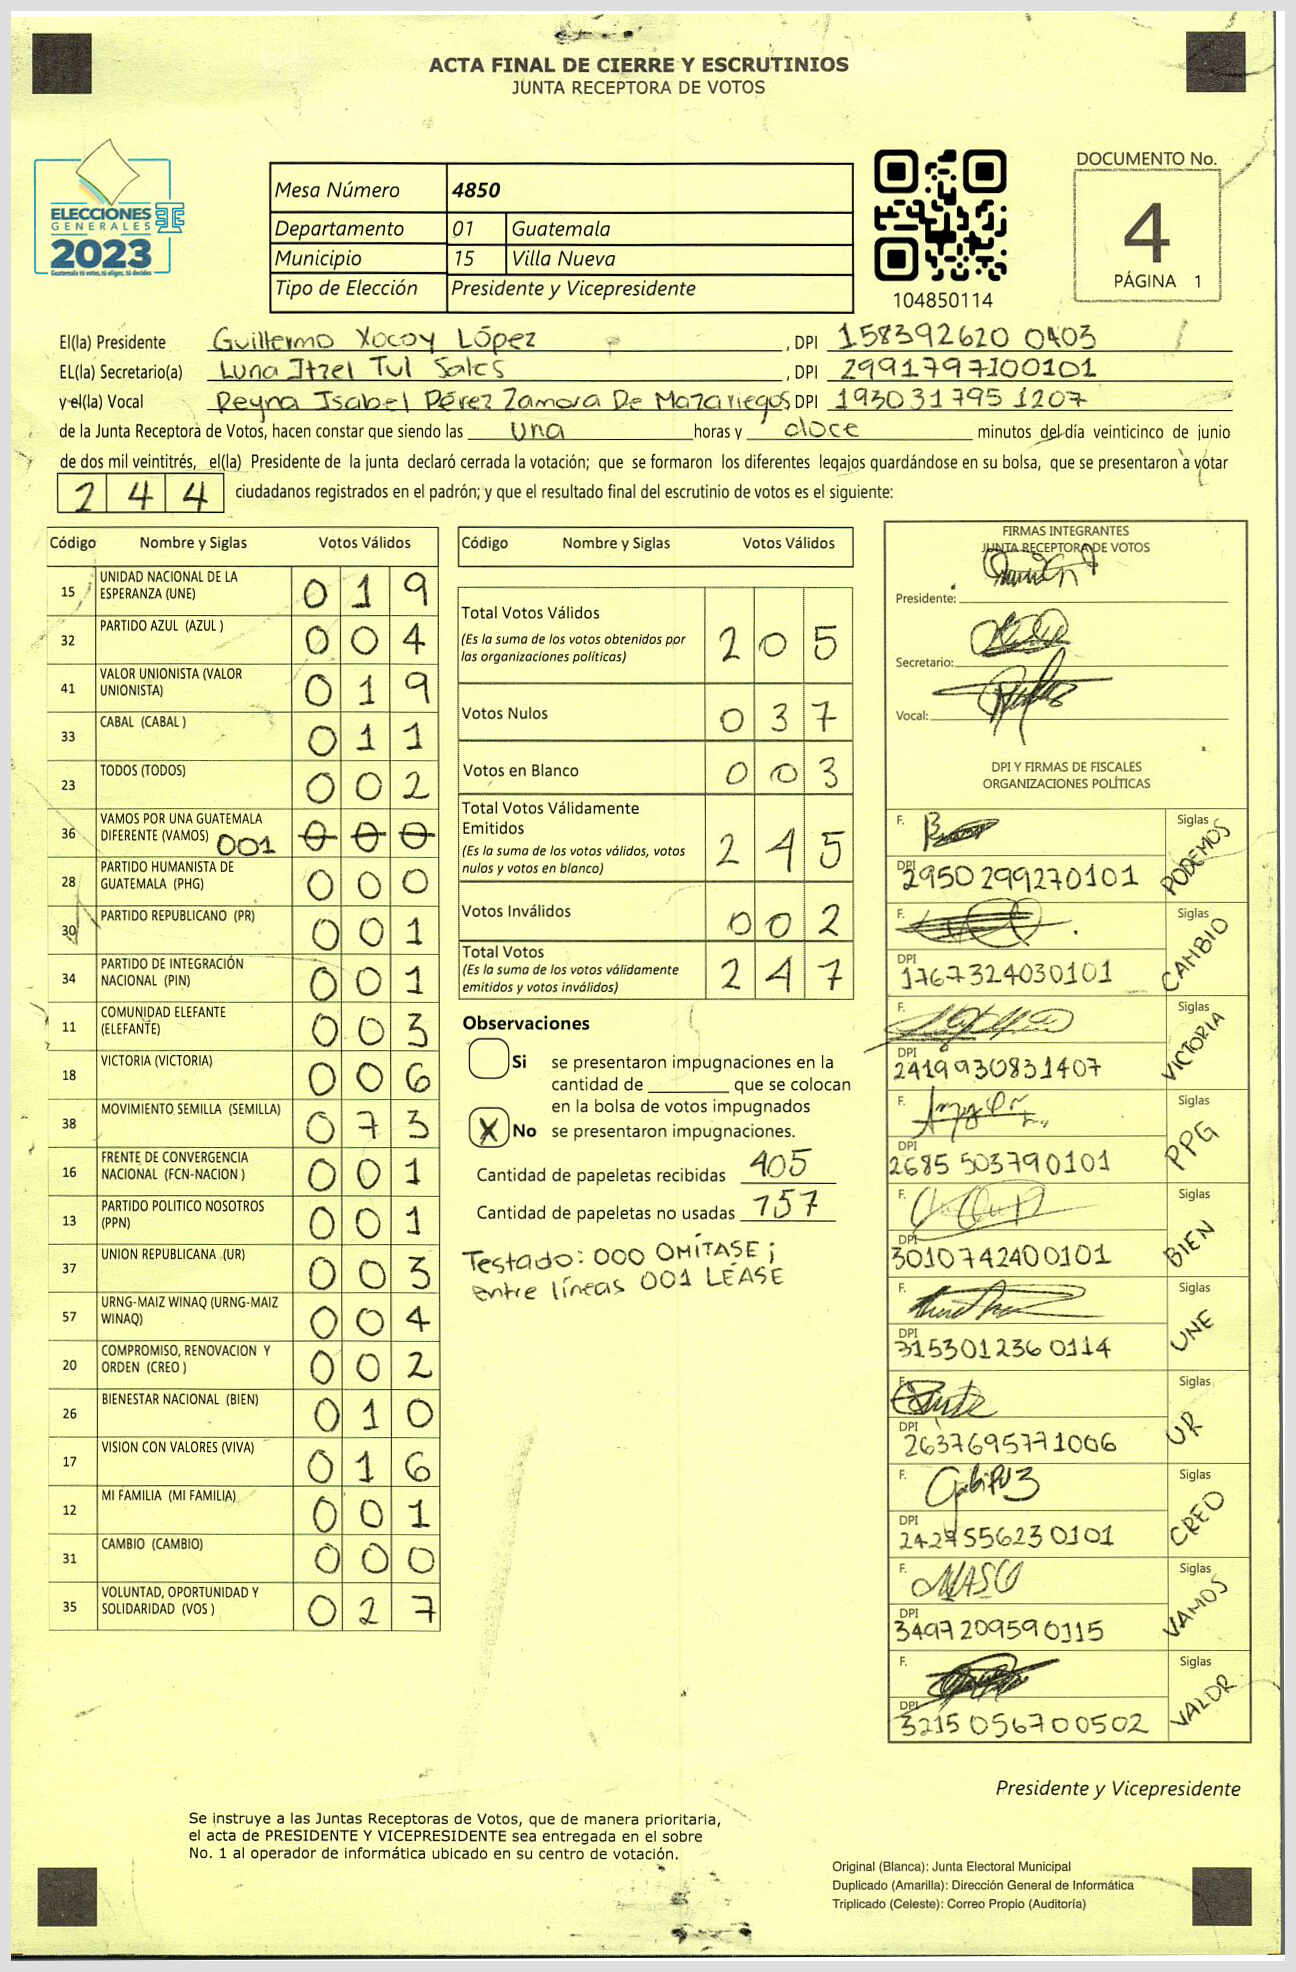 ACTA FINAL DE CIERRE Y ESCRUTINIOS
JUNTA RECEPTORA DE VOTOS
ELECCIONES
GENERALES
2023
Guatemala tú votas, tú eliges, tú decides
Mesa Número 4850
Departamento 01 Guatemala
Municipio 15 Villa Nueva
Tipo de Elección Presidente y Vicepresidente
104850114
DOCUMENTO No.
4
PÁGINA 1
El(la) Presidente Guillermo Xocoy López , DPI 158392620 0403
EL(la) Secretario(a) Luna Itzel Tul Sales , DPI 2991797100101
y el(la) Vocal Reyna Isabel Pérez Zamora De Mazariegos DPI 193031795 1207
de la Junta Receptora de Votos, hacen constar que siendo las una horas y doce minutos del día veinticinco de junio
de dos mil veintitrés, el(la) Presidente de la junta declaró cerrada la votación; que se formaron los diferentes legajos guardándose en su bolsa, que se presentaron a votar
244 ciudadanos registrados en el padrón; y que el resultado final del escrutinio de votos es el siguiente:
Código Nombre y Siglas Votos Válidos
15 UNIDAD NACIONAL DE LA ESPERANZA (UNE) 019
32 PARTIDO AZUL (AZUL ) 004
41 VALOR UNIONISTA (VALOR UNIONISTA) 019
33 CABAL (CABAL ) 011
23 TODOS (TODOS) 002
36 VAMOS POR UNA GUATEMALA DIFERENTE (VAMOS) 001 000
28 PARTIDO HUMANISTA DE GUATEMALA (PHG) 000
30 PARTIDO REPUBLICANO (PR) 001
34 PARTIDO DE INTEGRACIÓN NACIONAL (PIN) 001
11 COMUNIDAD ELEFANTE (ELEFANTE) 003
18 VICTORIA (VICTORIA) 006
38 MOVIMIENTO SEMILLA (SEMILLA) 073
16 FRENTE DE CONVERGENCIA NACIONAL (FCN-NACION ) 001
13 PARTIDO POLITICO NOSOTROS (PPN) 001
37 UNION REPUBLICANA (UR) 003
57 URNG-MAIZ WINAQ (URNG-MAIZ WINAQ) 004
20 COMPROMISO, RENOVACION Y ORDEN (CREO ) 002
26 BIENESTAR NACIONAL (BIEN) 010
17 VISION CON VALORES (VIVA) 016
12 MI FAMILIA (MI FAMILIA) 001
31 CAMBIO (CAMBIO) 000
35 VOLUNTAD, OPORTUNIDAD Y SOLIDARIDAD (VOS ) 027
Código Nombre y Siglas Votos Válidos
Total Votos Válidos
(Es la suma de los votos obtenidos por las organizaciones políticas) 205
Votos Nulos 037
Votos en Blanco 003
Total Votos Válidamente Emitidos
(Es la suma de los votos válidos, votos nulos y votos en blanco) 245
Votos Inválidos 002
Total Votos
(Es la suma de los votos válidamente emitidos y votos inválidos) 247
Observaciones
Si se presentaron impugnaciones en la
cantidad de ________ que se colocan
en la bolsa de votos impugnados
X No se presentaron impugnaciones.
Cantidad de papeletas recibidas 405
Cantidad de papeletas no usadas 157
Testado: 000 OMÍTASE;
entre líneas 001 LÉASE
FIRMAS INTEGRANTES
JUNTA RECEPTORA DE VOTOS
Presidente:
Secretario:
Vocal:
DPI Y FIRMAS DE FISCALES
ORGANIZACIONES POLÍTICAS
F. Siglas PODEMOS
DPI 2950 299270101
F. Siglas CAMBIO
DPI 1767324030101
F. Siglas VICTORIA
DPI 2419930831407
F. Siglas PPG
DPI 2685 503790101
F. Siglas BIEN
DPI 3010742400101
F. Siglas UNE
DPI 315301236 0114
F. Siglas UR
DPI 2637695771006
F. Siglas CREO
DPI 2427556230101
F. Siglas VAMOS
DPI 3497209590115
F. Siglas VALOR
DPI 3215 056700502
Presidente y Vicepresidente
Se instruye a las Juntas Receptoras de Votos, que de manera prioritaria,
el acta de PRESIDENTE Y VICEPRESIDENTE sea entregada en el sobre
No. 1 al operador de informática ubicado en su centro de votación.
Original (Blanca): Junta Electoral Municipal
Duplicado (Amarilla): Dirección General de Informática
Triplicado (Celeste): Correo Propio (Auditoría)